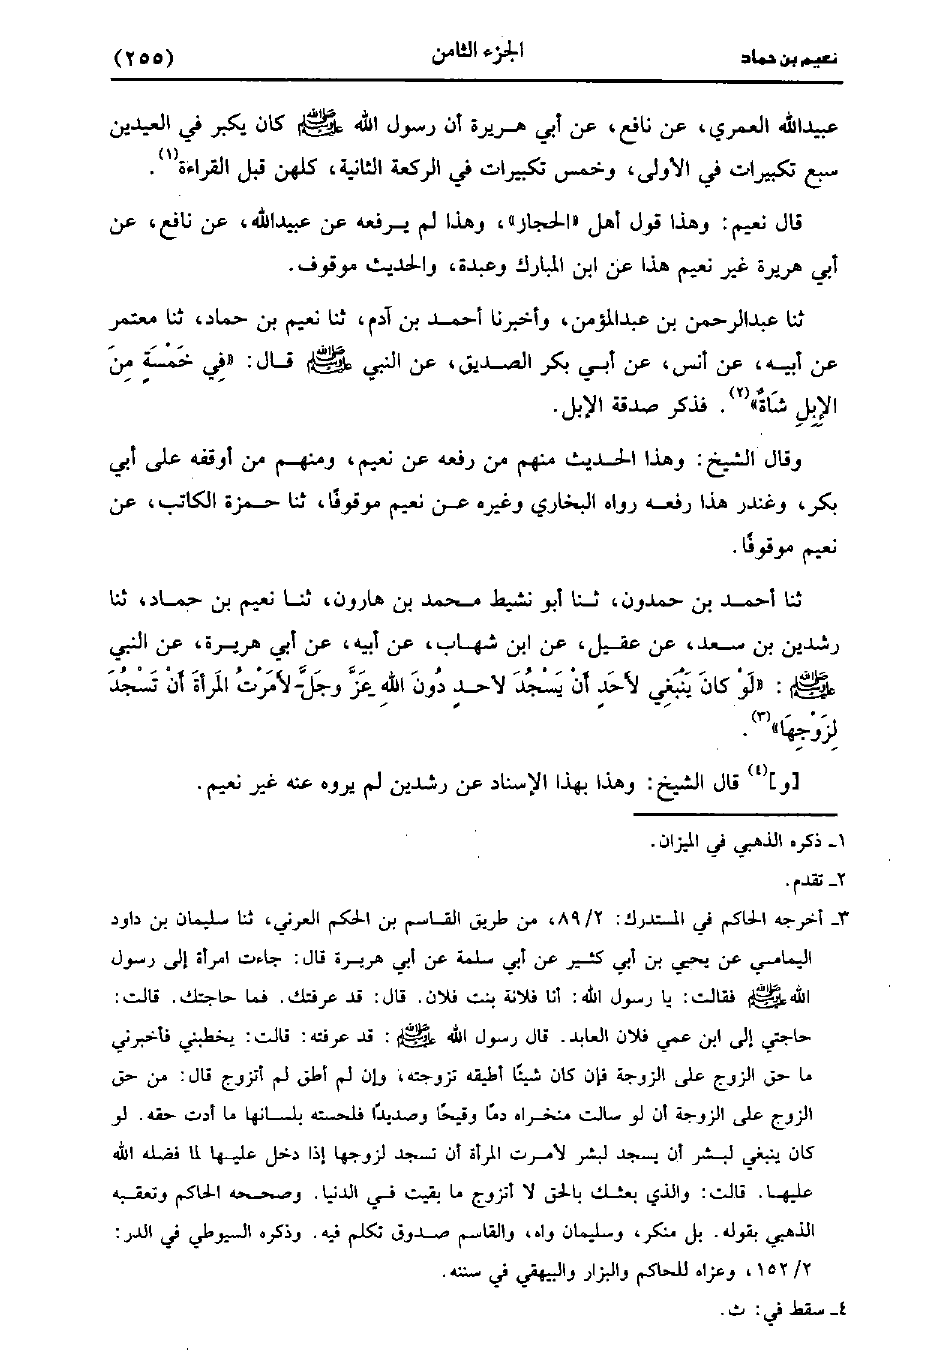 نعيم بن حماد الجزء الثامن (٢٥٥)
عبيدالله العمري، عن نافع، عن أبي هـريرة أن رسول الله ﷺ كان يكبر في العيدين
سبع تكبيرات في الأولى، وخمس تكبيرات في الركعة الثانية، كلهن قبل القراءة(١).
قال نعيم: وهذا قول أهل «الحجاز»، وهذا لم يـرفعه عن عبيدالله، عن نافع، عن
أبي هريرة غير نعيم هذا عن ابن المبارك وعبدة، والحديث موقوف.
ثنا عبدالرحمن بن عبدالمؤمن، وأخبرنا أحمـد بن آدم، ثنا نعيم بن حماد، ثنا معتمر
عن أبيـه، عن أنس، عن أبـي بكر الصـديق، عن النبي ﷺ قـال: «فِي خَمْسَةٍ مِنَ
الإِبِلِ شَاةٌ»(٢). فذكر صدقة الإبل.
وقال الشيخ: وهذا الحـديث منهم من رفعه عن نعيم، ومنهـم من أوقفه على أبي
بكر، وغندر هذا رفعـه رواه البخاري وغيره عـن نعيم موقوفًا، ثنا حـمزة الكاتب، عن
نعيم موقوفًا.
ثنا أحمـد بن حمدون، ثـنا أبو نشيط محمد بن هارون، ثنـا نعيم بن حمـاد، ثنا
رشدين بن سـعد، عن عقـيل، عن ابن شهـاب، عن أبيه، عن أبي هريـرة، عن النبي
ﷺ: «لَوْ كَانَ يَنْبَغِي لأَحَدٍ أَنْ يَسْجُدَ لأحـدٍ دُونَ اللهِ عَزَّ وجَلَّ-لأَمَرْتُ المَرأةَ أنْ تَسْجُدَ
لِزَوْجِهَا»(٣).
[و](٤) قال الشيخ: وهذا بهذا الإسناد عن رشدين لم يروه عنه غير نعيم.
١ـ ذكره الذهبي في الميزان.
٢ـ تقدم.
٣ـ أخرجه الحاكم في المستدرك: ٨٩/٢، من طريق القـاسم بن الحكم العرني، ثنا سليمان بن داود
اليمامـي عن يحيى بن أبي كثـير عن أبي سلمة عن أبي هريـرة قال: جاءت امرأة إلى رسول
الله ﷺ فقالت: يا رسول الله: أنا فلانة بنت فلان. قال: قد عرفتك. فما حاجتك. قالت:
حاجتي إلى ابن عمي فلان العابد. قال رسول الله ﷺ: قد عرفته: قالت: يخطبني فأخبرني
ما حق الزوج على الزوجة فإن كان شيئًا أطيقه تزوجته، وإن لم أطق لم أتزوج قال: من حق
الزوج على الزوجة أن لو سالت منخراه دمًا وقيحًا وصديدًا فلحسته بلسانها ما أدت حقه. لو
كان ينبغي لبـشر أن يسجد لبشر لأمـرت المرأة أن تسجد لزوجها إذا دخل عليـها لما فضله الله
عليهـا. قالت: والذي بعثـك بالحق لا أتزوج ما بقيت فـي الدنيا. وصحـحه الحاكم وتعقـبه
الذهبي بقوله. بل منكر، وسليمان واه، والقاسم صـدوق تكلم فيه. وذكره السيوطي في الدر:
١٥٢/٢، وعزاه للحاكم والبزار والبيهقي في سننه.
٤ـ سقط في: ث.